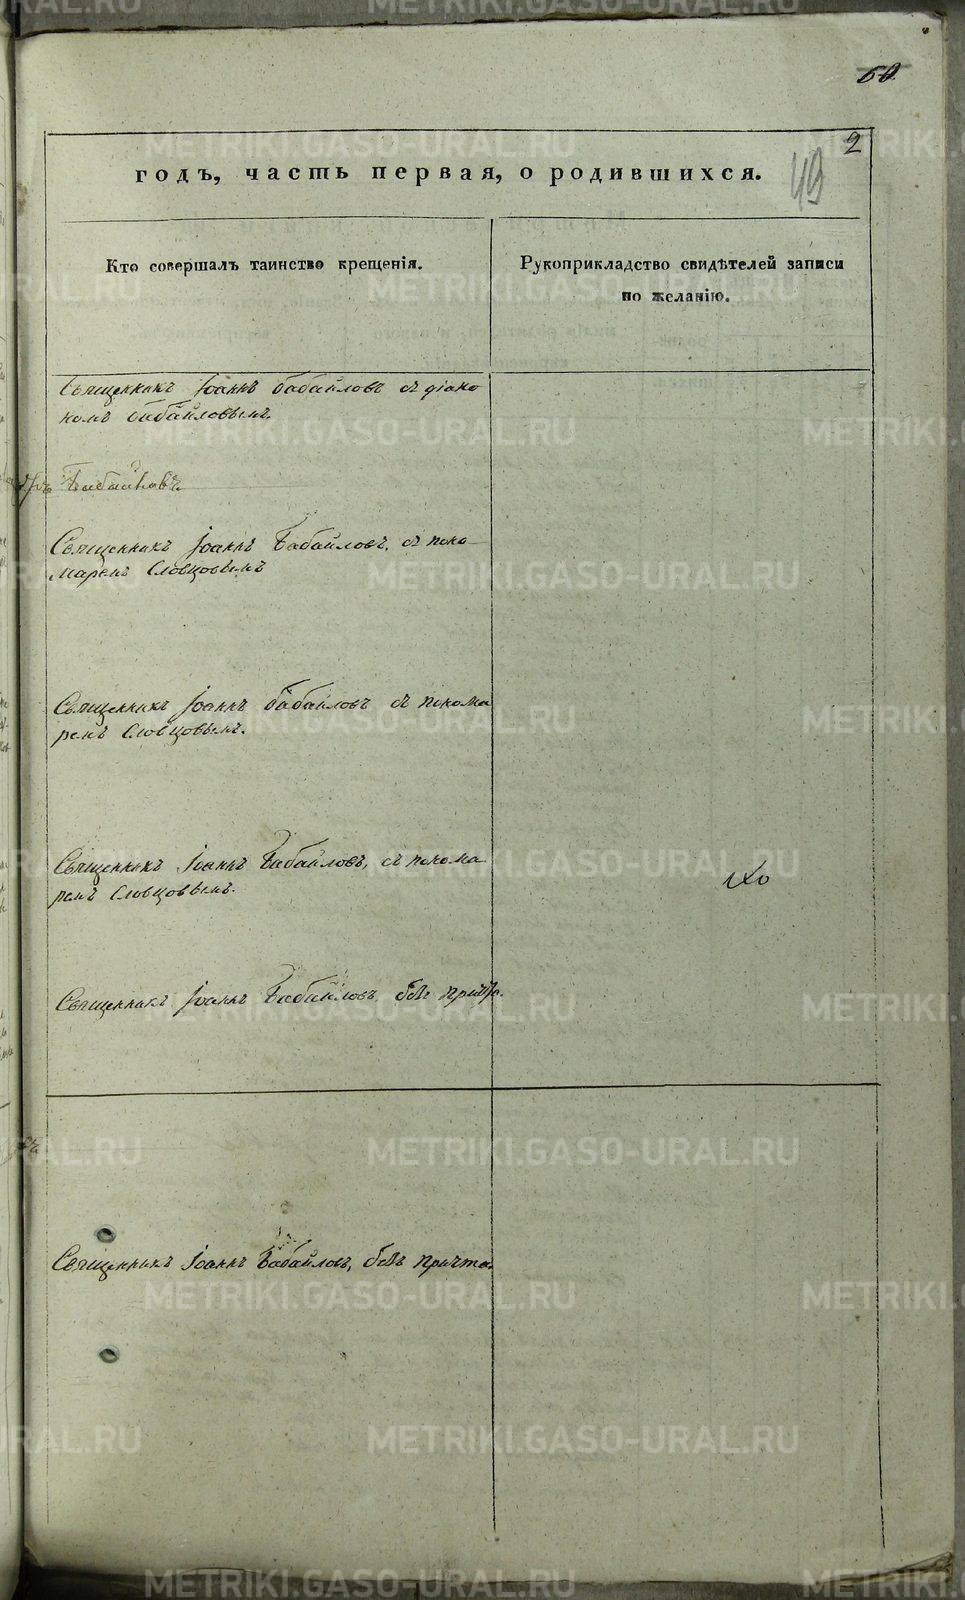 60
2
49
годъ, часть первая, о родившихся.
Кто совершалъ таинство крещенія.
Рукоприкладство свидѣтелей записи
по желанію.
Священникъ Іоаннъ Бабайловъ съ діако
номъ Бабайловымъ.
Бабайловъ.
Священникъ Іоаннъ Бабайловъ, съ поно
маремъ Словцовымъ
Священникъ Іоаннъ Бабайловъ съ понома
ремъ Словцовымъ.
Священникъ Іоаннъ Бабайловъ, съ понома
ремъ Словцовымъ.
Священникъ Іоаннъ Бабайловъ, безъ причта.
Священникъ Іоаннъ Бабайловъ, безъ причта.
METRIKI.GASO-URAL.RU